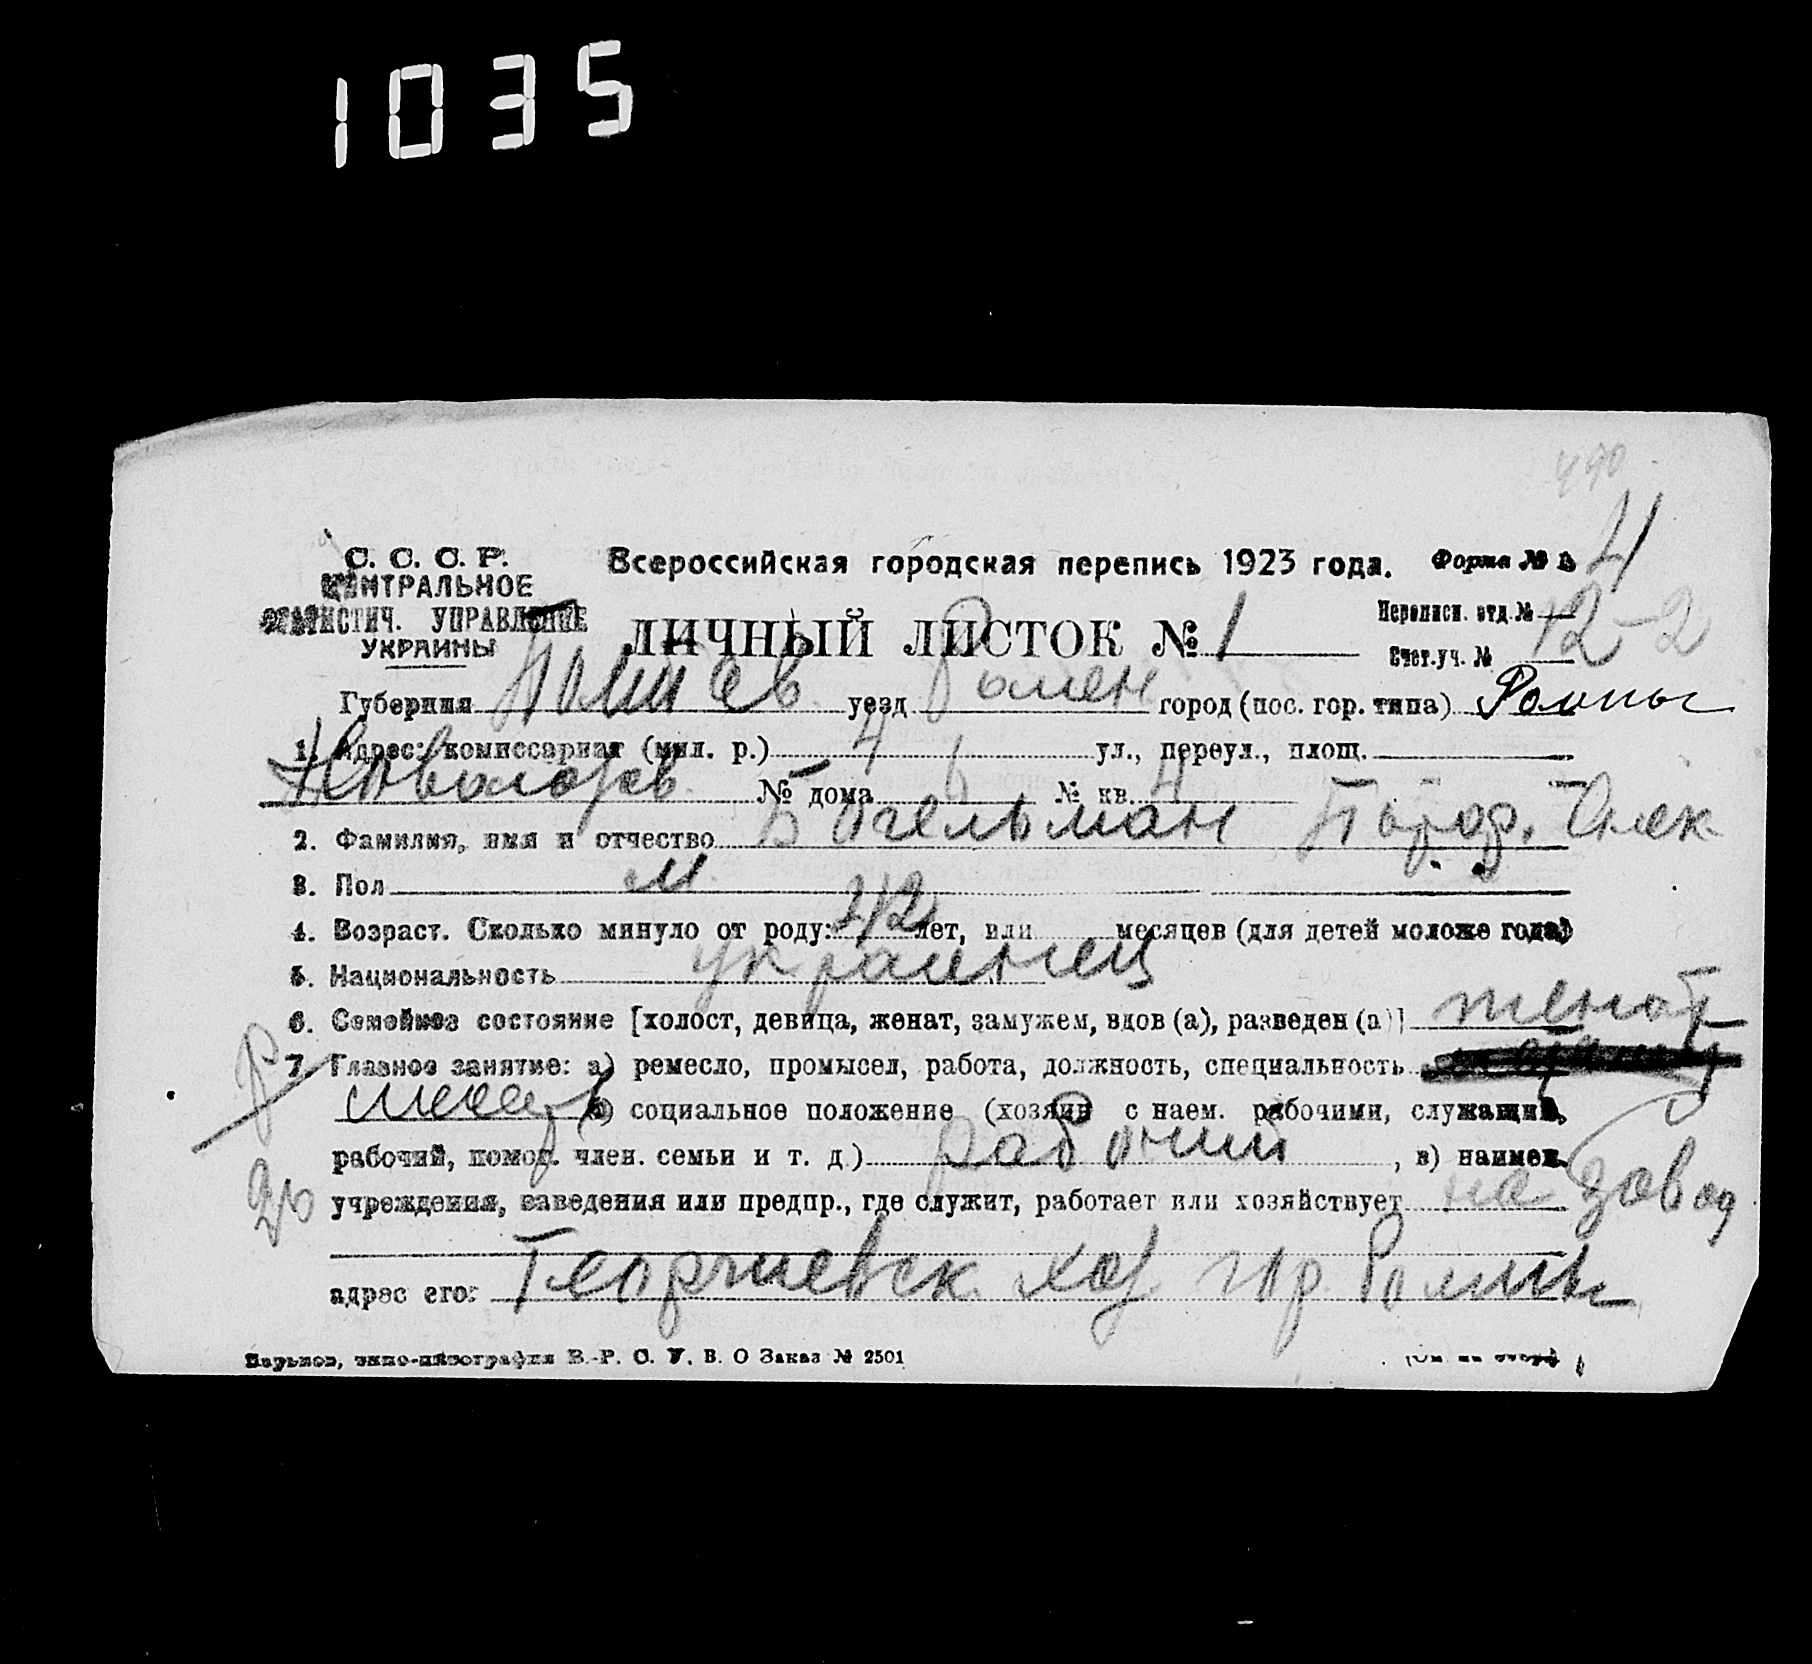 1035
490
С. С. С. Р.
ЦЕНТРАЛЬНОЕ
СТАТИСТИЧ. УПРАВЛЕНИЕ
УКРАИНЫ
Всероссийская городская перепись 1923 года. Форма № 4
ЛИЧНЫЙ ЛИСТОК № 1
Переписн. отд. №
Счет. уч. № 12-2
Губерния Полтав уезд Ромен город (пос. гор. типа) Ромны
1. Адрес: комиссариат (мил. р.) 4 ул., переул., площ.
№ дома 6 № кв. 4
2. Фамилия, имя и отчество Богельман
3. Пол М.
4. Возраст. Сколько минуло от роду: 42 лет, или месяцев (для детей моложе года)
5. Национальность украинец
6. Семейное состояние [холост, девица, женат, замужем, вдов (а), разведен (а)] женат
7. Главное занятие: а) ремесло, промысел, работа, должность, специальность
б) социальное положение (хозяин с наем. рабочими, служащий,
рабочий, помог. член. семьи и т. д.) рабочий, в) наимен.
учреждения, заведения или предпр., где служит, работает или хозяйствует на завод
адрес его: Георгиевск. гор. Ромны
Харьков, типо-литография В.-Р. С. У. В. О Заказ № 2501